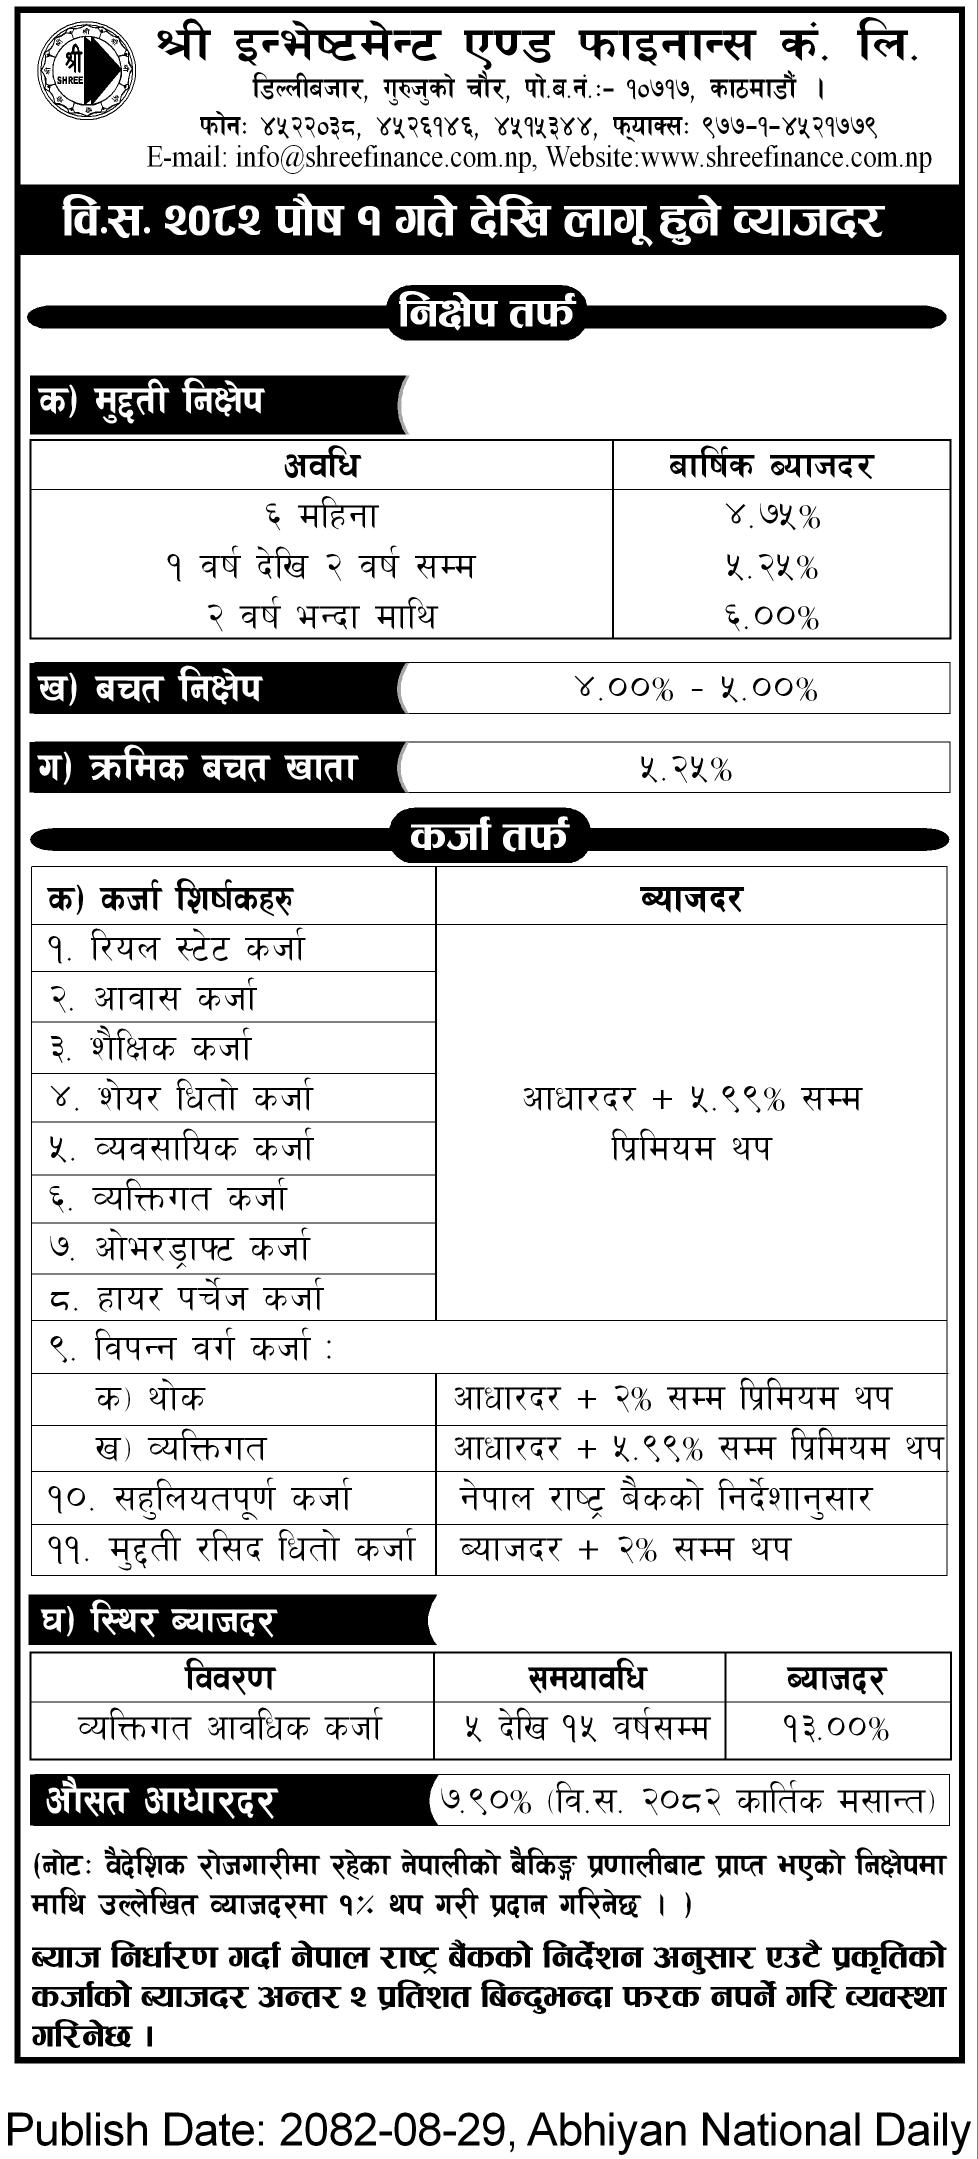 श्री
SHREE
श्री इन्भेष्टमेन्ट एण्ड फाइनान्स कं. लि.
डिल्लीबजार, गुरुजुको चौर, पो.ब.नं.:- १०७१७, काठमाडौं ।
फोनः ४५२२०३८, ४५२६१४६, ४५१५३४४, फ्याक्सः ९७७-१-४५२१७७९
E-mail: info@shreefinance.com.np, Website:www.shreefinance.com.np
वि.स. २०८२ पौष १ गते देखि लागू हुने व्याजदर
निक्षेप तर्फ
क) मुद्दती निक्षेप
अवधि बार्षिक ब्याजदर
६ महिना ४.७५%
१ वर्ष देखि २ वर्ष सम्म ५.२५%
२ वर्ष भन्दा माथि ६.००%
ख) बचत निक्षेप ४.००% - ५.००%
ग) क्रमिक बचत खाता ५.२५%
कर्जा तर्फ
क) कर्जा शिर्षकहरु ब्याजदर
१. रियल स्टेट कर्जा
२. आवास कर्जा
३. शैक्षिक कर्जा
४. शेयर धितो कर्जा
५. व्यवसायिक कर्जा
६. व्यक्तिगत कर्जा
७. ओभरड्राफ्ट कर्जा
८. हायर पर्चेज कर्जा
आधारदर + ५.९९% सम्म
प्रिमियम थप
९. विपन्न वर्ग कर्जा :
क) थोक आधारदर + २% सम्म प्रिमियम थप
ख) व्यक्तिगत आधारदर + ५.९९% सम्म प्रिमियम थप
१०. सहुलियतपूर्ण कर्जा नेपाल राष्ट्र बैकको निर्देशानुसार
११. मुद्दती रसिद धितो कर्जा ब्याजदर + २% सम्म थप
घ) स्थिर ब्याजदर
विवरण समयावधि ब्याजदर
व्यक्तिगत आवधिक कर्जा ५ देखि १५ वर्षसम्म १३.००%
औसत आधारदर ७.९०% (वि.स. २०८२ कार्तिक मसान्त)
(नोटः वैदेशिक रोजगारीमा रहेका नेपालीको बैकिङ्ग प्रणालीबाट प्राप्त भएको निक्षेपमा
माथि उल्लेखित व्याजदरमा १% थप गरी प्रदान गरिनेछ । )
ब्याज निर्धारण गर्दा नेपाल राष्ट्र बैंकको निर्देशन अनुसार एउटै प्रकृतिको
कर्जाको ब्याजदर अन्तर २ प्रतिशत बिन्दुभन्दा फरक नपर्ने गरि व्यवस्था
गरिनेछ ।
Publish Date: 2082-08-29, Abhiyan National Daily